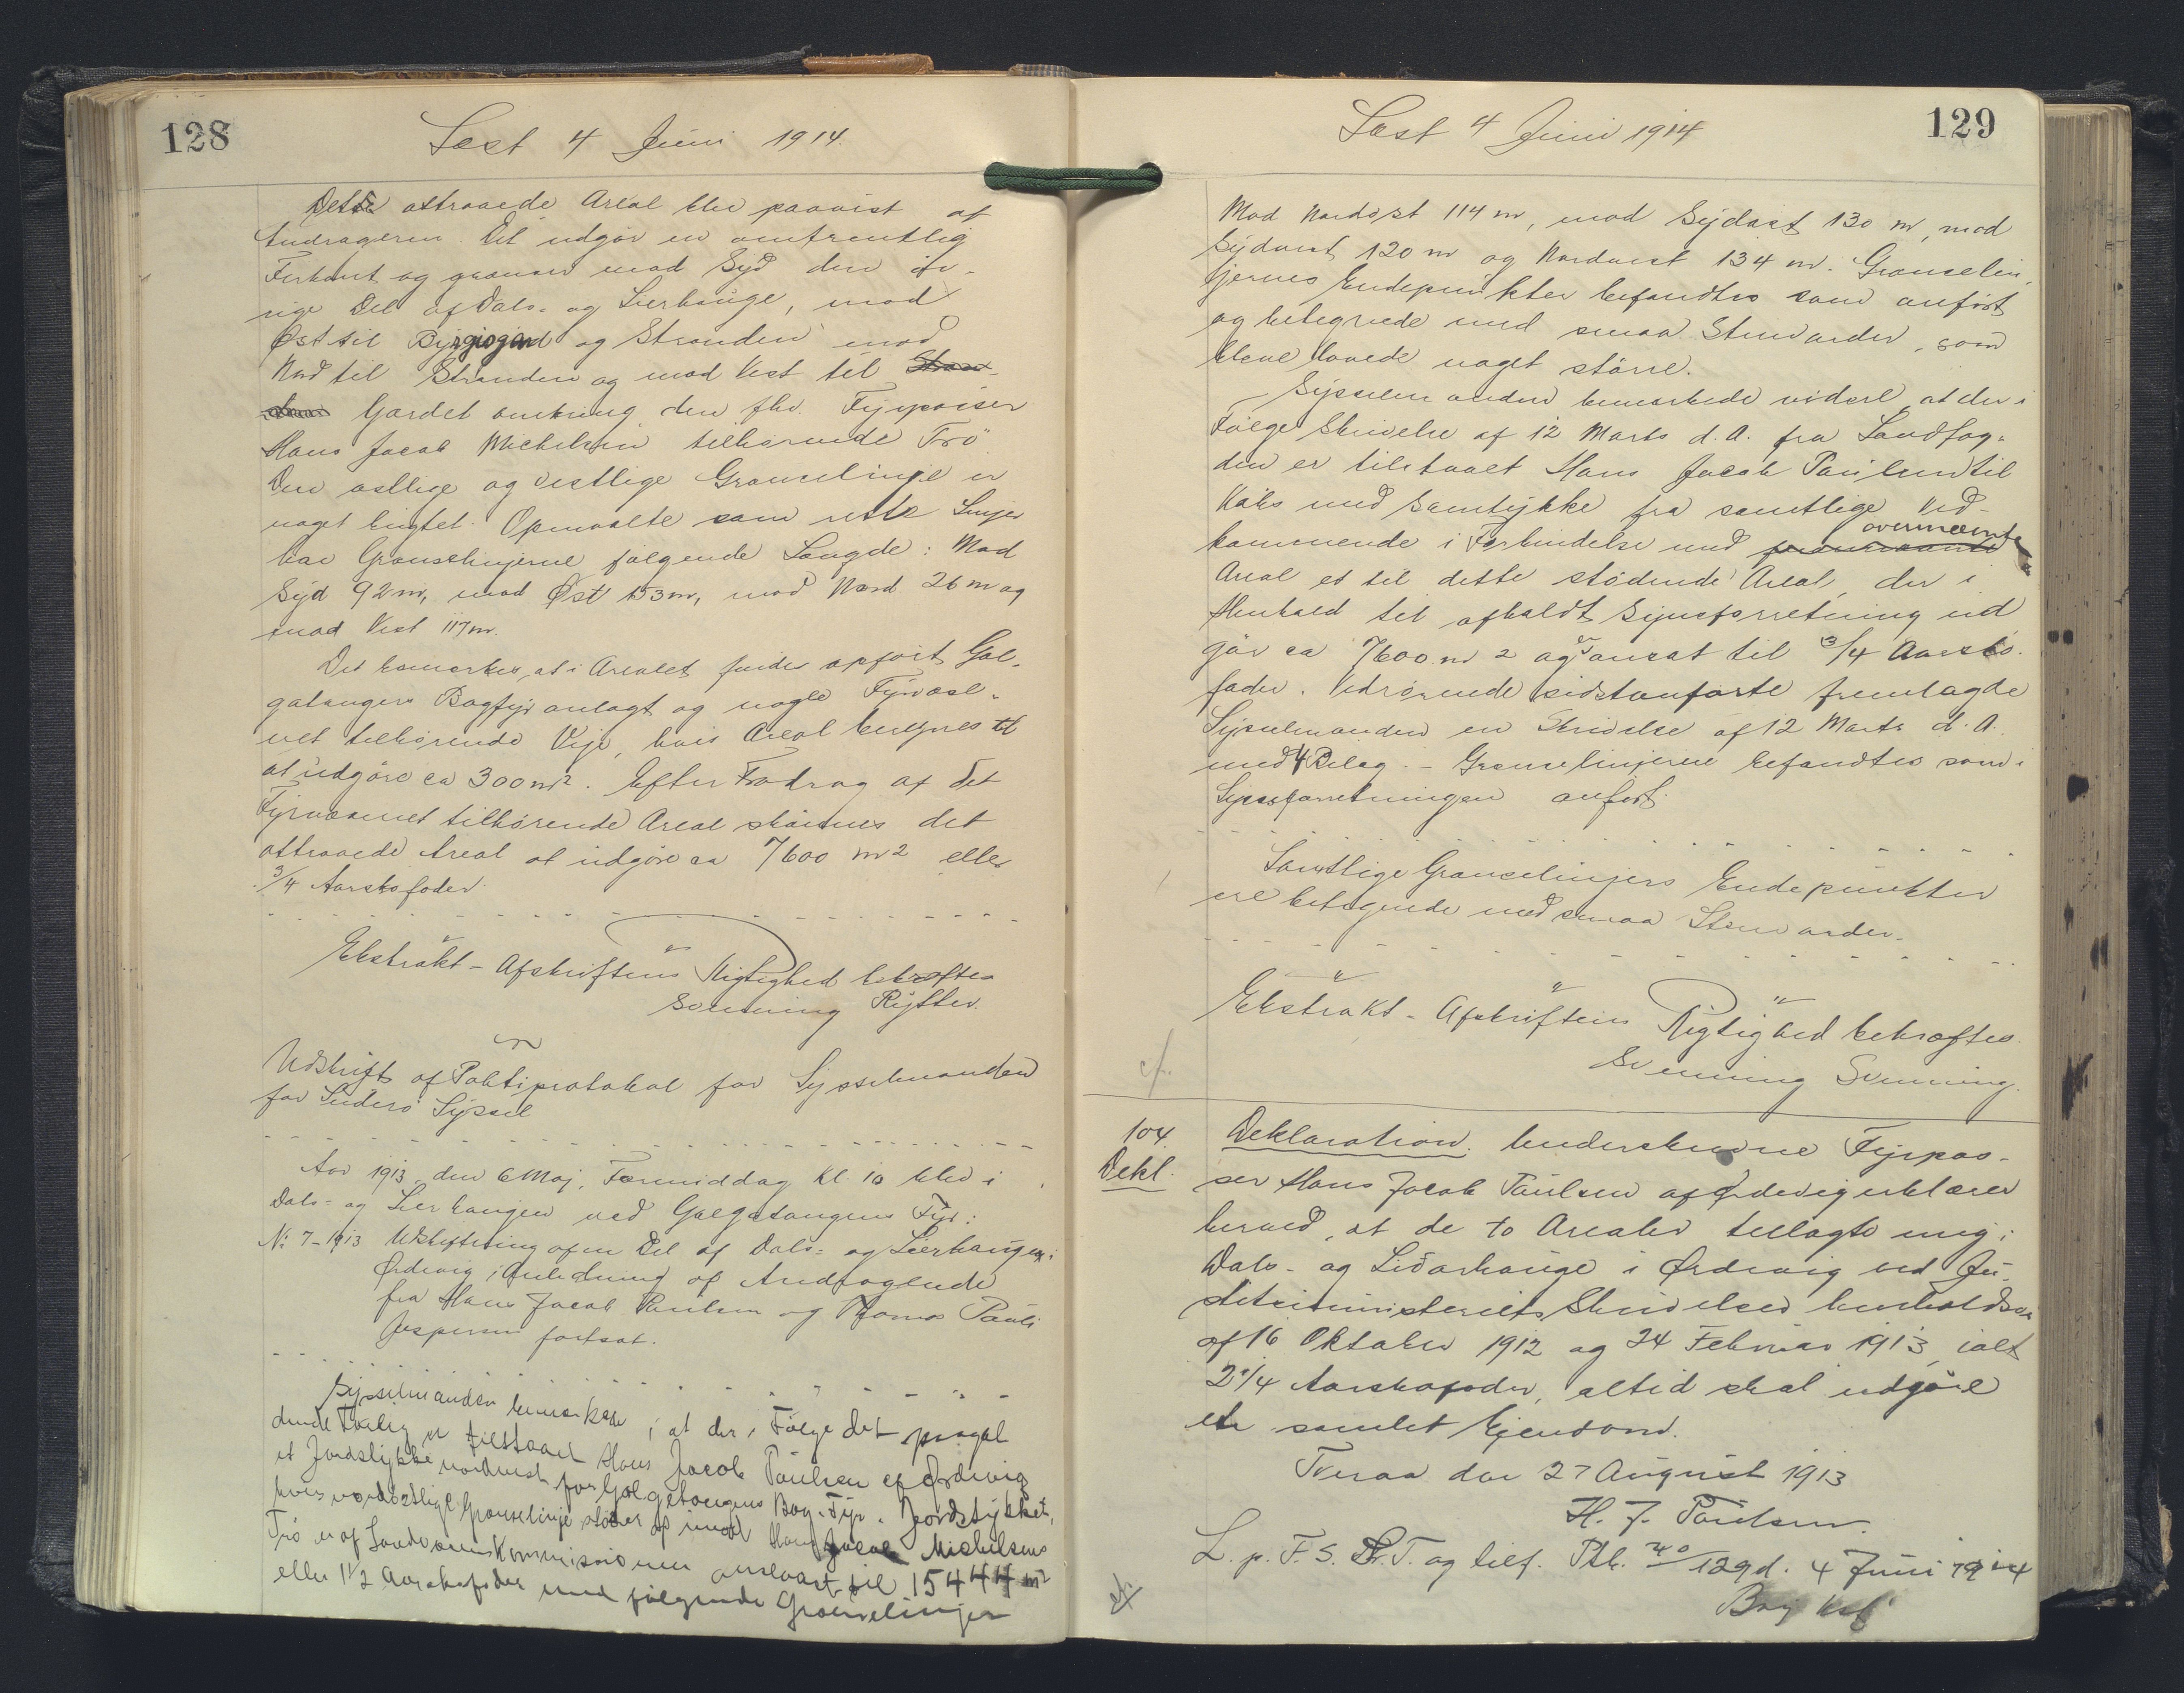 128
Læst 4 Juni 1914.
Dette attraaede Areal blev paavist af
Andrageren. Det udgør en omtrentlig
Firkant og grænser mod Syd den öv-
rige Del af Dals- og Lierhauge, mod
Øst til Bygiogard og Stranden mod
Nord til Stranden og mod Vest til
Gærdet omkring den fhv. Fyrpasser
Hans Jacob Michelsen tilhörende Trö
Den østlige og vestlige Grænselinje er
noget bugtet. Opmaalte som rette Linjer
har Grænselinjerne følgende Længde: Mod
Syd 92 m, mod Øst 153 m, mod Nord 26 m og
mod Vest 117 m.
Det bemærkes, at i Arealet findes opført Gal-
gatangens Bagfyr anlagt og nogle Fyrvæse-
net tilhørende Veje, hvis Areal beregnes til
at udgöre ca 300 m². Efter Fradrag af det
Fyrvæsenet tilhörende Areal skönnes det
attraaede Areal at udgöre ca 7600 m2 eller
3/4 Aarskofoder.
Ekstrakt-Afskriftens Rigtighed bekræftes
Svenning Rytter.
Udskrift af Politiprotokol for Sysselmanden
for Suderö Syssel
Aar 1913, den 6 Maj, Formiddag Kl 10 blev i
Dals- og Lierhaugen ved Galgatangens Fyr:
No 7-1913 Udskiftning af en Del af Dals- og Lierhaugen i
Ørdevig i Anledning af Andragende
fra Hans Jacob Paulsen og Thomas Pauli
Jespersen fortsat.
Sysselmanden bemærkede, at der i Følge det
et Jordstykke nordvest for Galgetangens Bag-Fyr. Jordstykket,
hvis nordöstlige Grænselinje stöder op imod Hans Jacob Michelsens
Trö er af Landvæsenskommissionen ansat til 15444 m2
eller 1 1/2 Aarskofoder med følgende Grænselinjer
129
Læst 4 Juni 1914
Mod Nordøst 114 m, mod Sydöst 130 m, mod
Sydvest 120 m og Nordvest 134 m. Grænselin-
jernes Endepunkter befandtes som anført
og betegnede med smaa Stenvarder, som
bleve lavede noget större.
Sysselmanden bemærkede videre at der i
Følge Skrivelse af 12 Marts d.A. fra Landfog-
den er tilstaaet Hans Jacob Paulsen til
Købs med Samtykke fra samtlige Ved-
kommende i Forbindelse med ovennævnte
Areal et til dette stödende Areal, der i
Henhold til afholdt Synsforretning ud
gör ca 7600 m 2 og er ansat til 3/4 Aarsko-
foder. Vedrörende sidstanførte fremlagde
Sysselmanden en Skrivelse af 12 Marts d.A.
med 4 Bilag. - Grænselinjerne befandtes som i
Synsforretningen anført.
Samtlige Grænselinjers Endepunkter
ere betegnede med smaa Stenvarder.
Ekstrakt-Afskriftens Rigtighed bekræftes.
Svenning Svenning.
cf.
104.
Dekl.
Deklaration. Underskrevne Fyrpas-
ser Hans Jacob Paulsen af Ørdevig erklærer
herved, at de to Arealer tillagte mig i
Dals- og Lidarhauge i Ørdevig ved Ju-
stitsministeriets Skrivelser henholdsvis
af 16 Oktober 1912 og 24 Februar 1913, ialt
2 1/4 Aarskofoder, altid skal udgöre
et samlet Ejendom.
Tveraa den 27 August 1913
H. J. Paulsen.
L. p. F. S. Th. T. og tilf. Ptk. 40/129 d. 4 Juni 1914
cf.